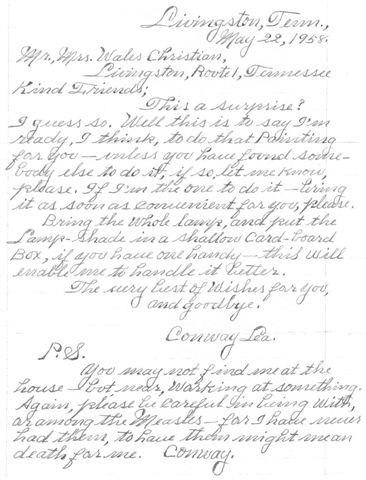 Livingston, Tenn.,
May 22, 1958.
Mr., Mrs. Wales Christian,
Livingston, Route 1, Tennessee
Kind Friends;
This a surprise?
I guess so. Well this is to say I'm
ready, I think, to do that Painting
for you — unless you have found some-
body else to do it, if so, let me know,
please. If I'm the one to do it — bring
it as soon as convenient for you, please.
Bring the whole lamp, and put the
Lamp-Shade in a shallow Card-board
Box, if you have one handy — this will
enable me to handle it better.
The very best of Wishes for you,
and goodbye.
Conway Lea.
P.S.
You may not find me at the
house — but near, working at something.
Again, please be careful in being with,
or among the Measles — for I have never
had them, to have them might mean
death for me. Conway.